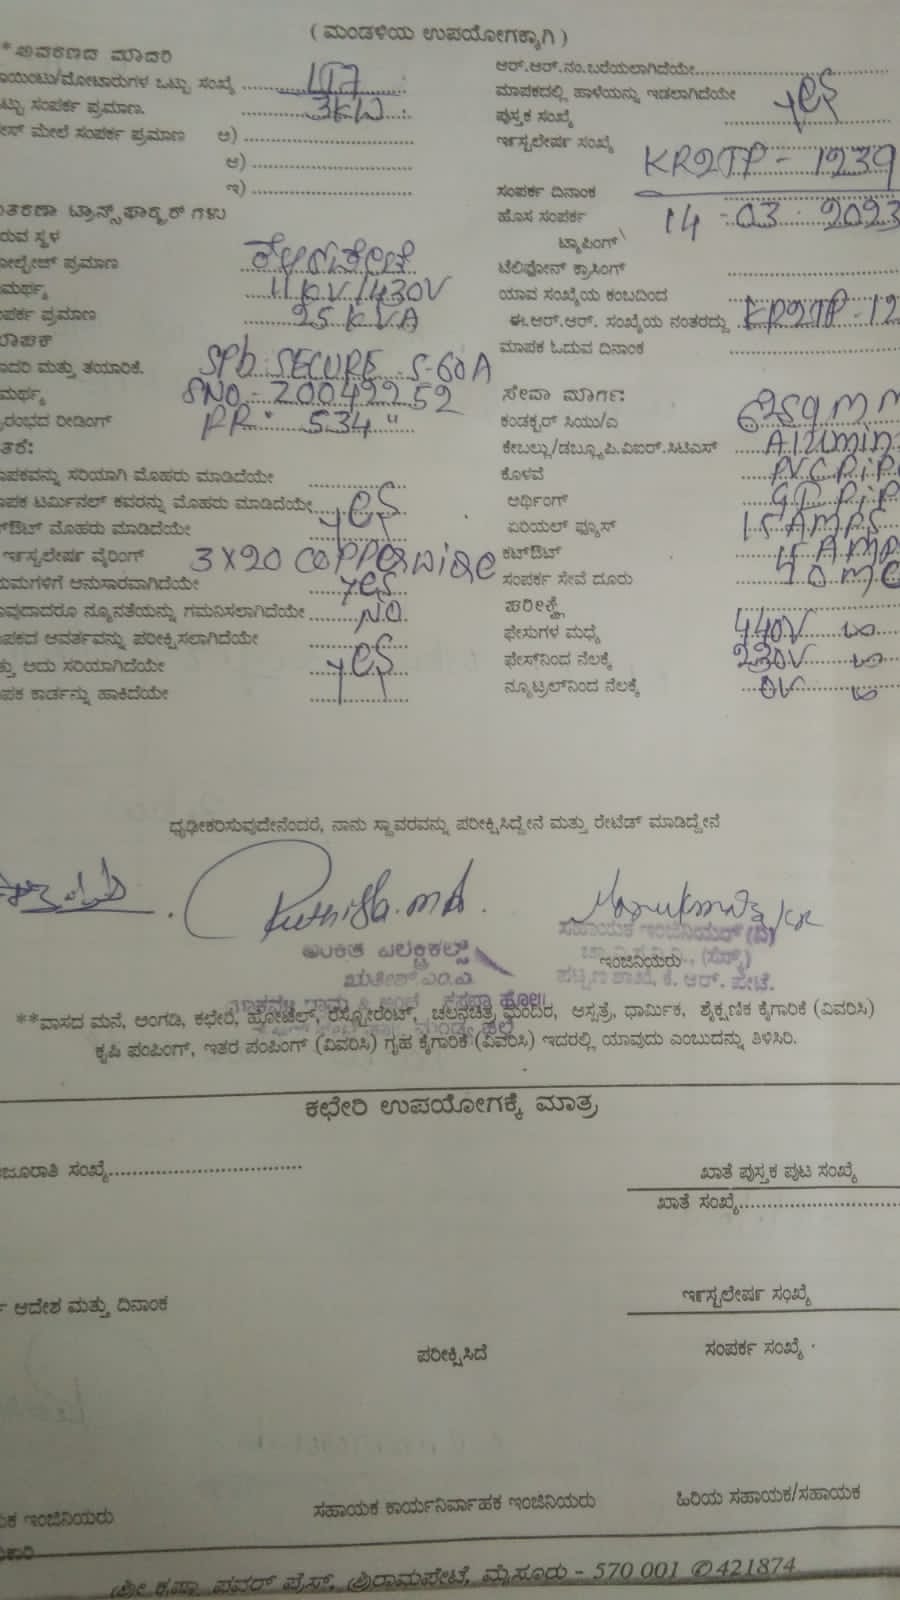 ( ಮಂಡಳಿಯ ಉಪಯೋಗಕ್ಕಾಗಿ )
ಮಾದರಿ
ಯಿಂಟು/ಮೋಟಾರುಗಳ ಒಟ್ಟು ಸಂಖ್ಯೆ LT7
ಟ್ಟು ಸಂಪರ್ಕ ಪ್ರಮಾಣ. 3KW
ಮೇಲೆ ಸಂಪರ್ಕ ಪ್ರಮಾಣ ಅ)
ಆ)
ಇ)
ಟ್ರಾನ್ಸ್‌ಫಾರ್ಮರ್ ಗಳು
ರುವ ಸ್ಥಳ
ಪ್ರಮಾಣ 11KV/430V
ಪರ್ಕ ಪ್ರಮಾಣ 25 KVA
ಮಾಪಕ
ಾದರಿ ಮತ್ತು ತಯಾರಿಕೆ. SECURE S-60A
ಮರ್ಥ್ಯ SNO - 20042252
ರಂಭದ ರೀಡಿಂಗ್ RR: 534
ಾಪಕವನ್ನು ಸರಿಯಾಗಿ ಮೊಹರು ಮಾಡಿದೆಯೇ
ಾಪಕ ಟರ್ಮಿನಲ್ ಕವರನ್ನು ಮೊಹರು ಮಾಡಿದೆಯೇ yes
ಟ್ ಮೊಹರು ಮಾಡಿದೆಯೇ
ಇನ್ಸ್ಟಲೇಷನ್ ವೈರಿಂಗ್ 3 X 20 COPPER WIRE
ಯಮಗಳಿಗೆ ಅನುಸಾರವಾಗಿದೆಯೇ yes
ಾವುದಾದರೂ ನ್ಯೂನತೆಯನ್ನು ಗಮನಿಸಲಾಗಿದೆಯೇ NO
ಾಪಕದ ಆವರ್ತವನ್ನು ಪರೀಕ್ಷಿಸಲಾಗಿದೆಯೇ
ತ್ತು ಅದು ಸರಿಯಾಗಿದೆಯೇ yes
ಾಪಕ ಕಾರ್ಡನ್ನು ಹಾಕಿದೆಯೇ
ಆರ್.ಆರ್.ನಂ.ಬರೆಯಲಾಗಿದೆಯೇ
ಮಾಪಕದಲ್ಲಿ ಹಾಳೆಯನ್ನು ಇಡಲಾಗಿದೆಯೇ yes
ಪುಸ್ತಕ ಸಂಖ್ಯೆ
ಇನ್ಸ್ಟಲೇಷನ್ ಸಂಖ್ಯೆ KR2TP - 1239
ಸಂಪರ್ಕ ದಿನಾಂಕ
ಹೊಸ ಸಂಪರ್ಕ 14 - 03 - 2023
ಟ್ಯಾಪಿಂಗ್
ಟೆಲಿಫೋನ್ ಕ್ರಾಸಿಂಗ್
ಯಾವ ಸಂಖ್ಯೆಯ ಕಂಬದಿಂದ
ಈ.ಆರ್.ಆರ್. ಸಂಖ್ಯೆಯ ನಂತರದ್ದು KR2TP - 12
ಮಾಪಕ ಓದುವ ದಿನಾಂಕ
ಸೇವಾ ಮಾರ್ಗ:
ಕಂಡಕ್ಟರ್ ಸಿಯು/ಎ
ಕೇಬಲ್ಲು/ಡಬ್ಲ್ಯೂ.ಪಿ.ವಿಐಆರ್.ಸಿಟಿಎಸ್ Alumin
ಕೊಳವೆ PVC PIP
ಅರ್ಥಿಂಗ್ GI PIP
ಏರಿಯಲ್ ಫ್ಯೂಸ್ 15 AMPS
ಕಟ್ಔಟ್ 15 AMP
ಸಂಪರ್ಕ ಸೇವೆ ದೂರು
ಪರೀಕ್ಷೆ
ಫೇಸುಗಳ ಮಧ್ಯೆ 440V
ಫೇಸ್‌ನಿಂದ ನೆಲಕ್ಕೆ 230V
ನ್ಯೂಟ್ರಲ್‌ನಿಂದ ನೆಲಕ್ಕೆ 0V
ಧೃಢೀಕರಿಸುವುದೇನೆಂದರೆ, ನಾನು ಸ್ಥಾವರವನ್ನು ಪರೀಕ್ಷಿಸಿದ್ದೇನೆ ಮತ್ತು ರೇಟೆಡ್ ಮಾಡಿದ್ದೇನೆ
ಎಲೆಕ್ಟ್ರಿಕಲ್ಸ್
ಸಹಾಯಕ ಇಂಜಿನಿಯರ್ (ವಿ)
ಇಂಜಿನಿಯರು
ಕೆ. ಆರ್. ಪೇಟೆ.
**ವಾಸದ ಮನೆ, ಅಂಗಡಿ, ಕಛೇರಿ, ಹೋಟೆಲ್, ರೆಸ್ಟೋರೆಂಟ್, ಚಲನಚಿತ್ರ ಮಂದಿರ, ಆಸ್ಪತ್ರೆ, ಧಾರ್ಮಿಕ, ಶೈಕ್ಷಣಿಕ ಕೈಗಾರಿಕೆ (ವಿವರಿಸಿ)
ಕೃಷಿ ಪಂಪಿಂಗ್, ಇತರ ಪಂಪಿಂಗ್ (ವಿವರಿಸಿ) ಗೃಹ ಕೈಗಾರಿಕೆ (ವಿವರಿಸಿ) ಇದರಲ್ಲಿ ಯಾವುದು ಎಂಬುದನ್ನು ತಿಳಿಸಿರಿ.
ಕಛೇರಿ ಉಪಯೋಗಕ್ಕೆ ಮಾತ್ರ
ಜೂರಾತಿ ಸಂಖ್ಯೆ
ಖಾತೆ ಪುಸ್ತಕ ಪುಟ ಸಂಖ್ಯೆ
ಖಾತೆ ಸಂಖ್ಯೆ
ಆದೇಶ ಮತ್ತು ದಿನಾಂಕ
ಇನ್ಸ್ಟಲೇಷನ್ ಸಂಖ್ಯೆ
ಪರೀಕ್ಷಿಸಿದೆ
ಸಂಪರ್ಕ ಸಂಖ್ಯೆ
ಯಕ ಇಂಜಿನಿಯರು
ಸಹಾಯಕ ಕಾರ್ಯನಿರ್ವಾಹಕ ಇಂಜಿನಿಯರು
ಹಿರಿಯ ಸಹಾಯಕ/ಸಹಾಯಕ
ಕಾರಿ
ಶ್ರೀ ಕೃಷ್ಣಾ ಪವರ್ ಪ್ರೆಸ್, ಶ್ರೀರಾಮಪೇಟೆ, ಮೈಸೂರು - 570 001 ✆ 421874